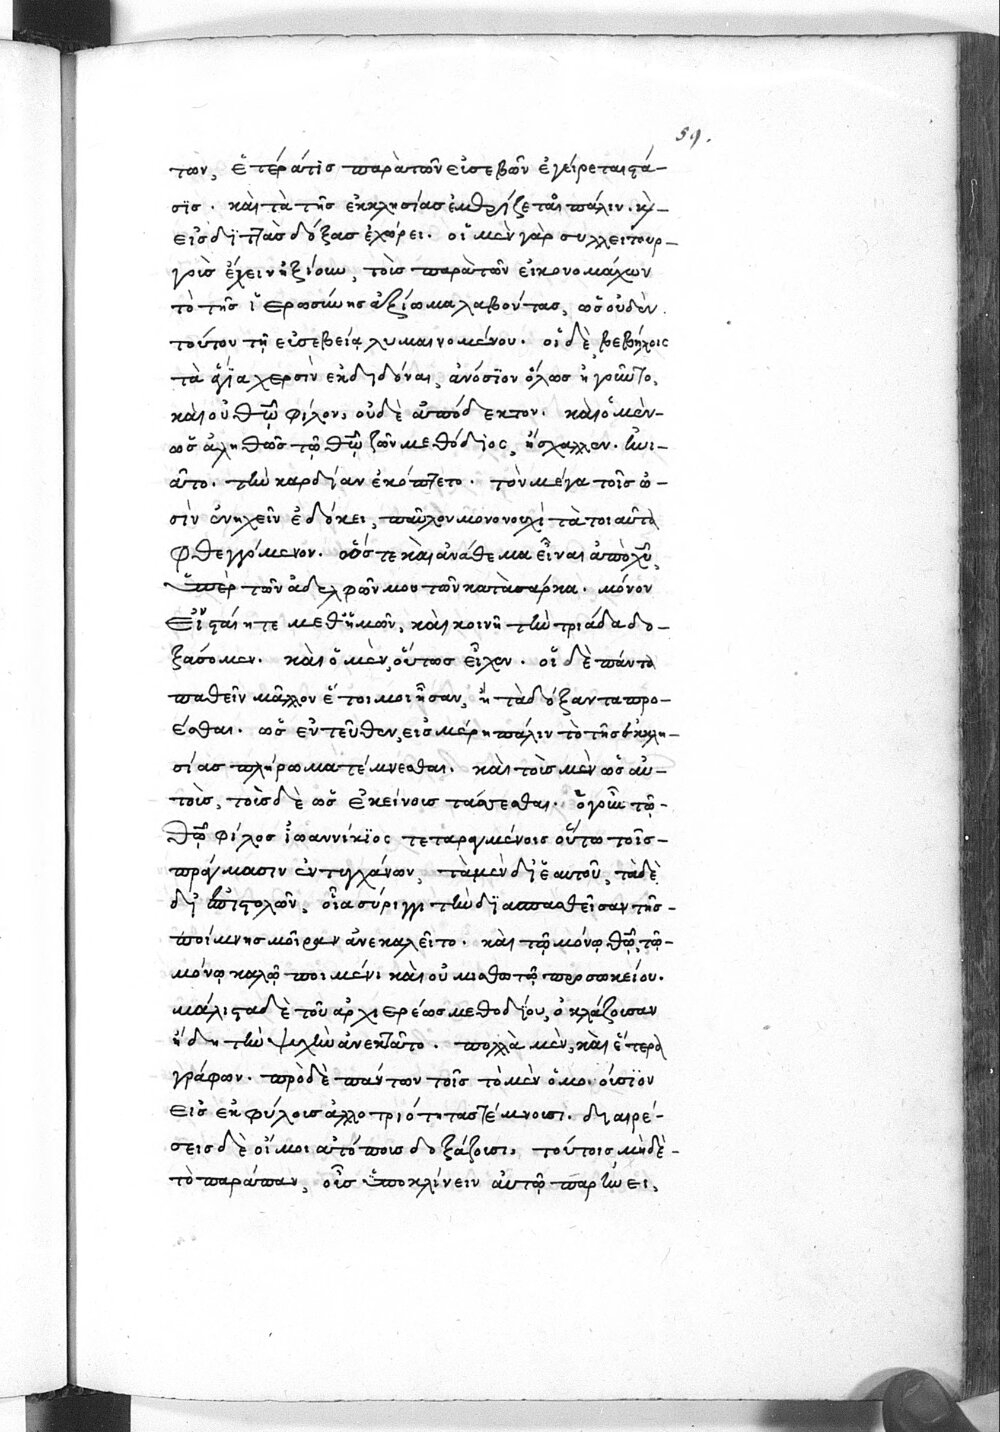 59.
των, ἑτέρά τις παρὰ τῶν εὐσεβῶν ἐγείρεται στά-
σις. καὶ τὰ τῆς ἐκκλησίας ἐμερίζετο πάλιν. κ̀
εἰς διττὰς δόξας ἐχώρει. οἱ μὲν γὰρ συλλειτουρ-
γοὺς ἔχειν ἠξίουν, τοὺς παρὰ τῶν εἰκονομάχων
τὸ τῆς ἱερωσύνης ἀξίωμα λαβόντας, ὡς οὐδὲν
τούτου τῇ εὐσεβείᾳ λυμαινομένου. οἱ δὲ, βεβήλοις
τὰ ἅγια χερσὶν ἐκδιδόναι, ἀνόσιον ὅλως ἡγοῦντο,
καὶ οὐ θῶ φίλον, οὐδὲ ἀπόδεκτον. καὶ ὁ μὲν
ὡς ἀληθῶς τῷ θῶ ζῶν μεθόδιος, ἤσχαλλεν. ἠνι-
ᾶτο. τὴν καρδίαν ἐκόπτετο. τὸν μέγα τοῖς ὠ-
σὶν ἐνηχεῖν ἐδόκει, παῦλον μονονουχὶ τὰ τοιαῦτα
φθεγγόμενον. ὥστε καὶ ἀνάθεμα εἶναι ἀπὸ χῦ,
ὑπὲρ τῶν ἀδελφῶν μου τῶν κατὰ σάρκα. μόνον
εἰ σταίητε μεθ' ἡμῶν, καὶ κοινῇ τὴν τριάδα δο-
ξάσομεν. καὶ ὁ μὲν, οὕτως εἶχεν. οἱ δὲ πάντα
παθεῖν μᾶλλον ἕτοιμοι ἦσαν, ἢ τὰ δόξαντα προ-
έσθαι. ὡς ἐντεῦθεν, εἰς μέρη πάλιν τὸ τῆς ἐκκλη-
σίας πλήρωμα τέμνεσθαι. καὶ τοὺς μὲν ὡς αὐ-
τοὺς, τοὺς δὲ ὡς ἐκείνοις τάσσεσθαι. ὁ γοῦν τῷ
θῶ φίλος ἰωαννίκιος τεταραγμένοις οὕτω τοῖς
πράγμασιν ἐντυγχάνων, τὰ μὲν δι' ἑαυτοῦ, τὰ δὲ
δι' ἐπιστολῶν, οἷα σύριγγι τὴν διασπασθεῖσαν τῆς
ποίμνης μοῖραν ἀνεκαλεῖτο. καὶ τῷ μόνῳ θῶ, τῷ
μόνῳ καλῷ ποιμένι καὶ οὐ μισθωτῷ προσωκείου.
μάλιστα δὲ τοῦ ἀρχιερέως μεθοδίου, ὀκλάζουσαν
ἤδη τὴν ψυχὴν ἀνεκτᾶτο. πολλὰ μὲν, καὶ ἕτερα
γράφων. πρὸ δὲ πάντων τοῖς τὸ μὲν ὁμοούσιον
εἰς ἐκφύλους ἀλλοτριότητας τέμνουσι. διαιρέ-
σεις δὲ οἴμοι ἀτόπους δοξάζουσι, τούτοις μηδὲ
τὸ παράπαν, οὖς ὑποκλίνειν αὐτῷ παρῄνει,